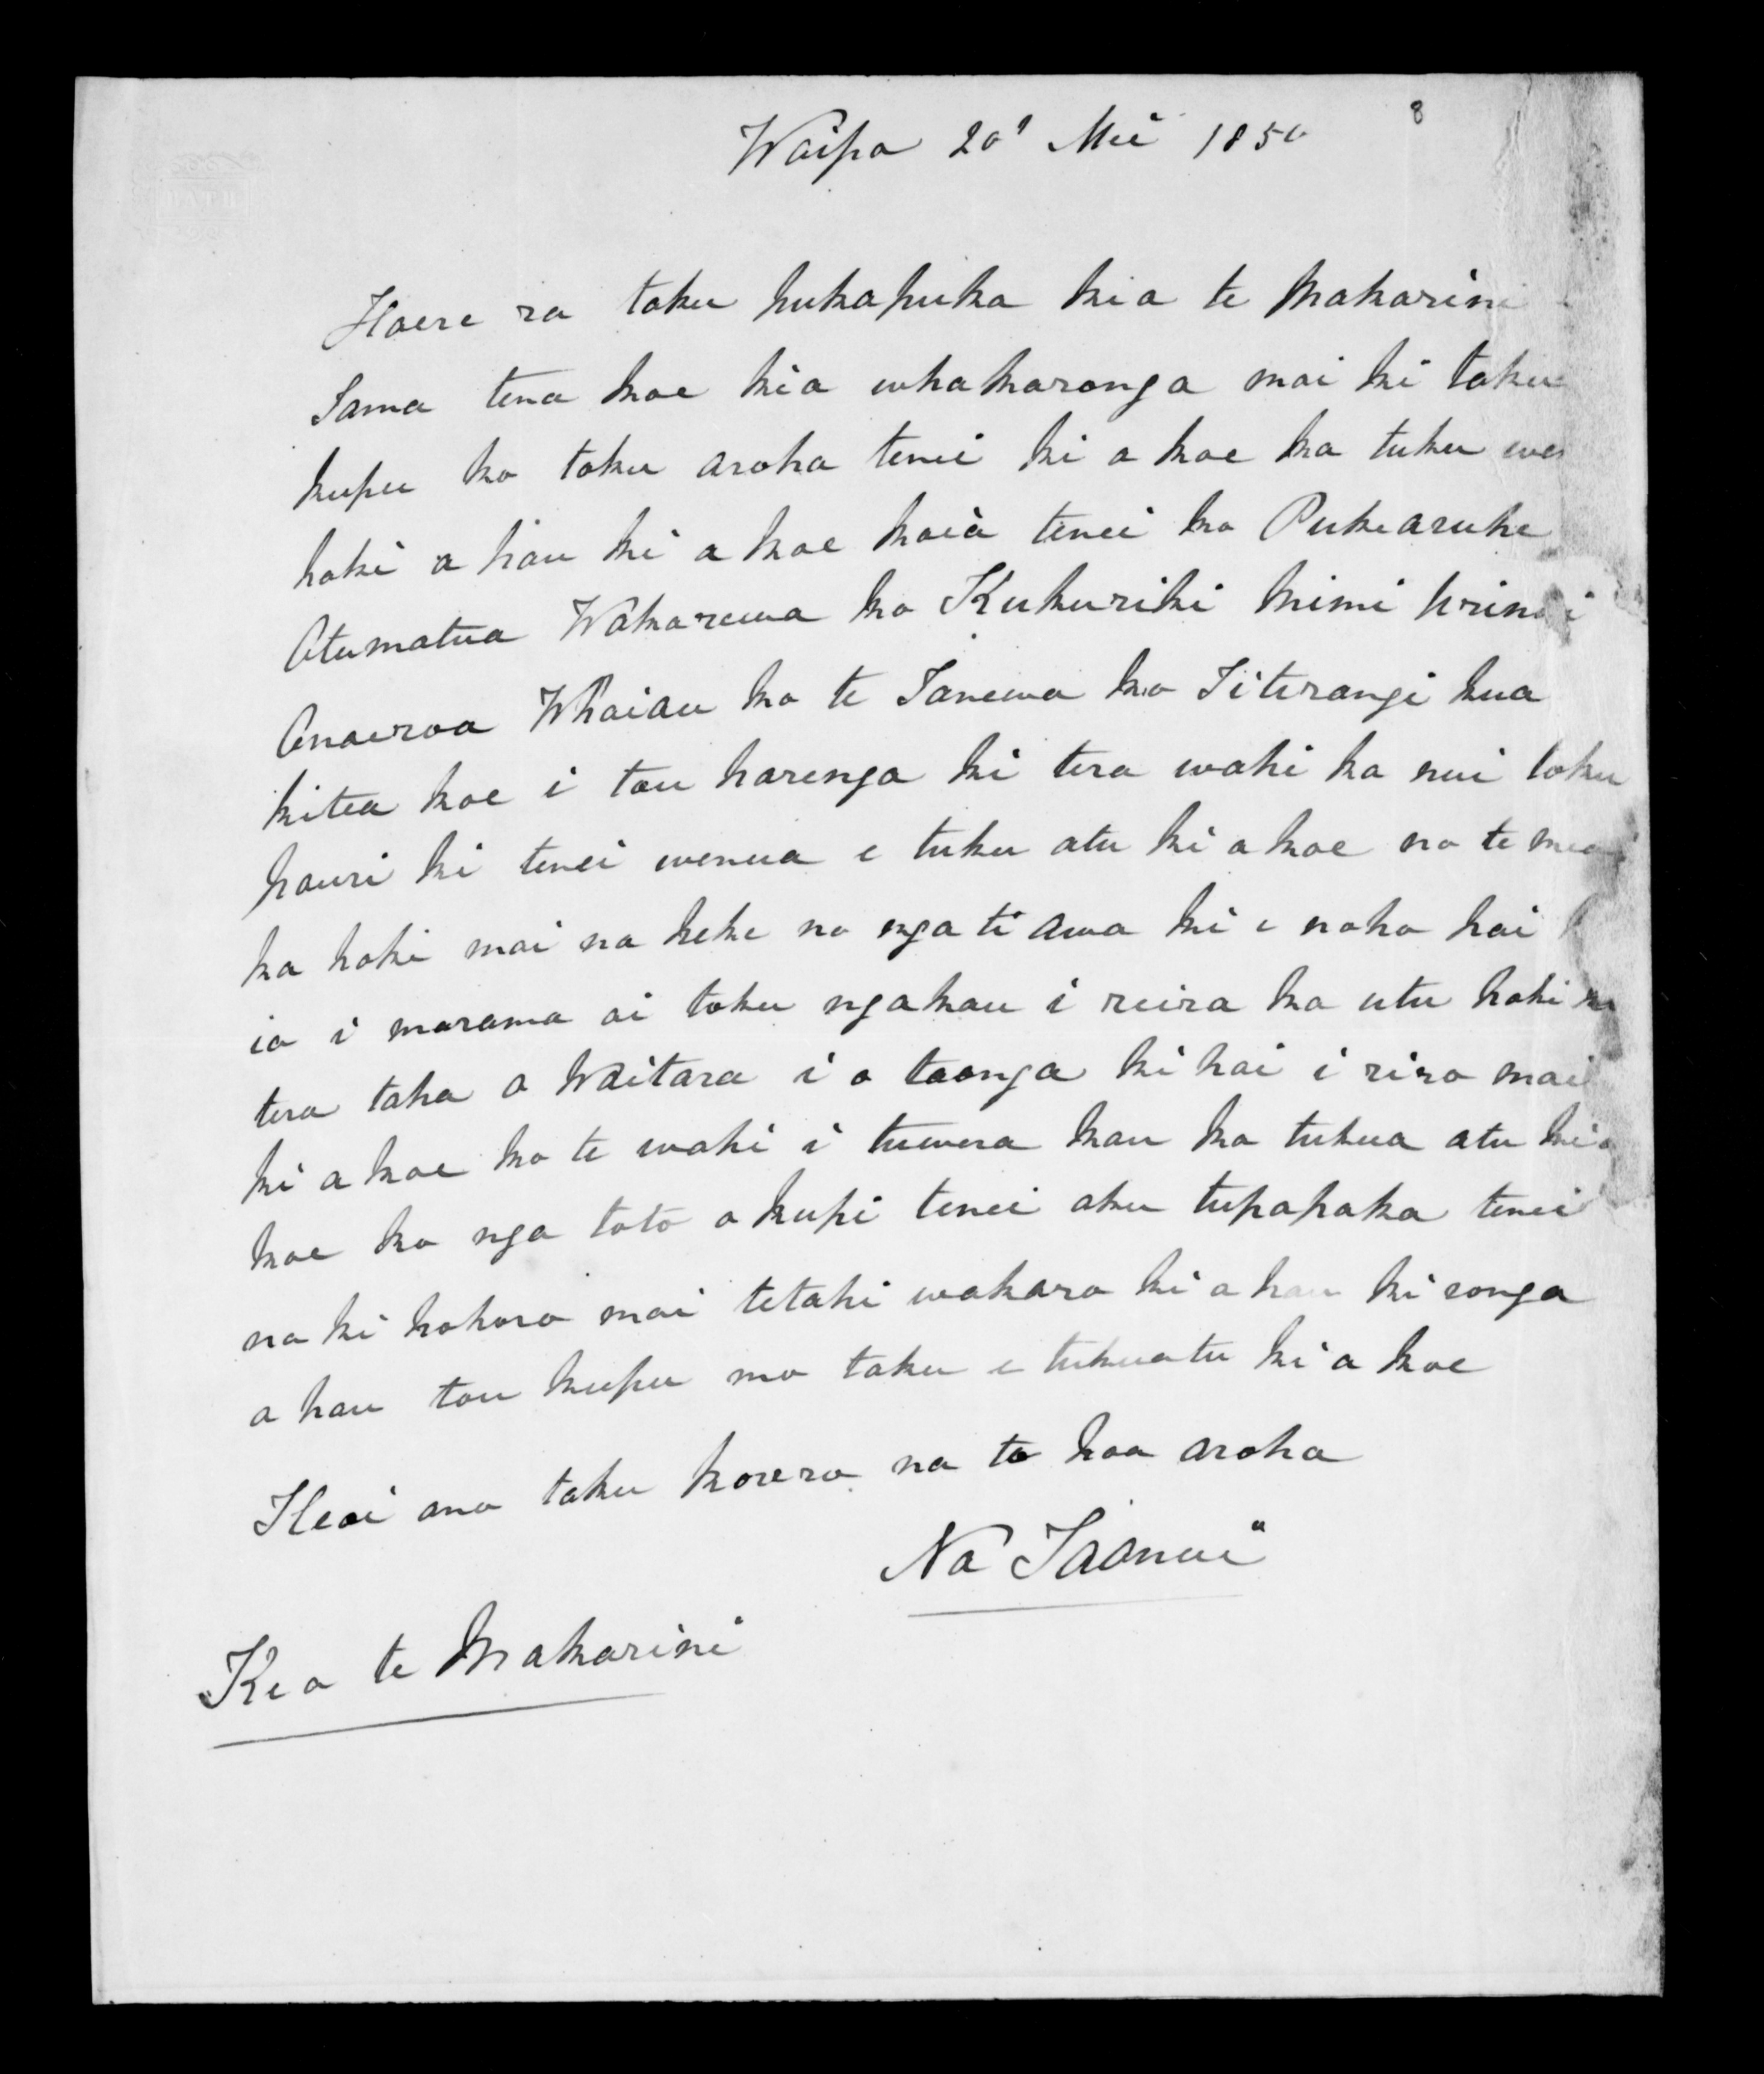 8
Waipa 20 Mei 1850
Haere ra toku pukapuka kia te Makarini
Tama tena koe kia whakaronga mai ki taku
kupu ko toku aroha tenei ki a koe ka tuku
hoki a hau ki a koe koia tenei ko Pukearuhe
Otumatua Wakarewa ko Kukuriki Mimi
Onaeroa Whaiau ko te Tanewa ko Titirangi kua
kitea koe i tou harenga ki tera wahi ka nui toku
pouri ki tenei wenua e tuku atu ki a koe no te mea
ka hoki mai na heke no nga ti awa ki e noho hai
ia i marama ai toku ngakau i reira ka utu hoki
tera taha o Waitara i o taonga ki hai i riro mai
ki a koe ko te wahi i tuwera kau ka tukua atu ki a
koe ko nga toto o kupi tenei aku tupapaka tenei
na ki hohoro mai tetahi wakaro ki a hau ki ronga
a hau tou kupu mo taku e tukuatu ki a koe
Heoi ano taku korero na to hoa aroha
Na Taonui
Kia te Makarini